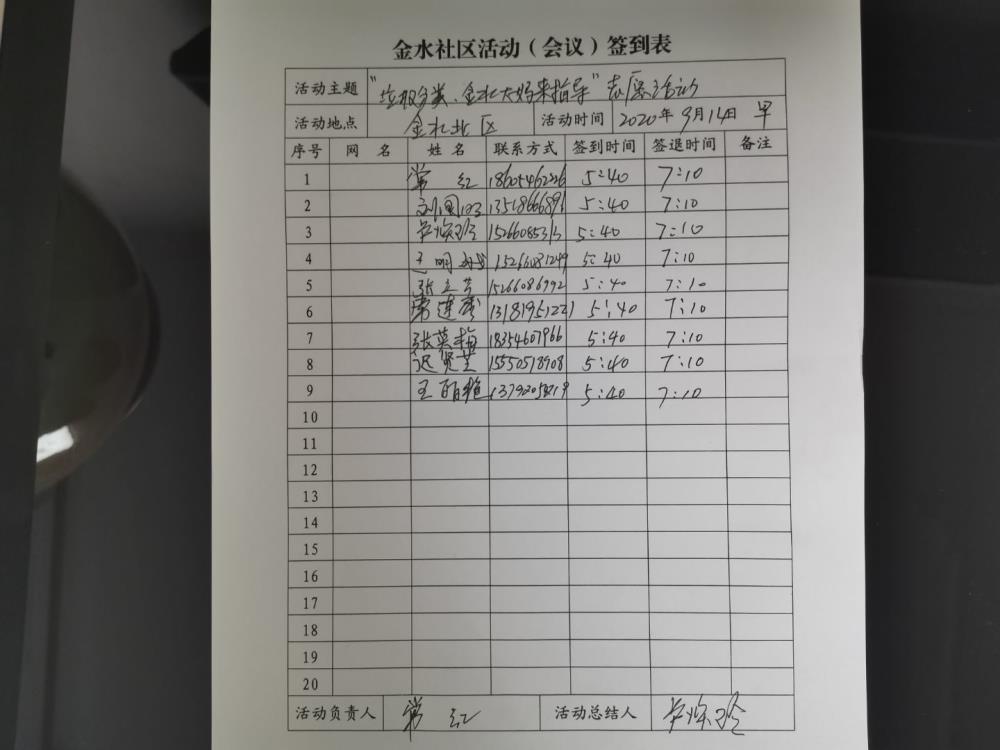 金水社区活动（会议）签到表
活动主题 “垃圾分类、金水大妈来指导”志愿活动
活动地点 金水北区 活动时间 2020年9月14日 早
序号 网 名 姓 名 联系方式 签到时间 签退时间 备注
1 常 红 18605462226 5:40 7:10
2 刘国 5:40 7:10
3 5:40 7:10
4 王明 15266081249 5:40 7:10
5 张立芳 15266086992 5:40 7:10
6 常连 13181951221 5:40 7:10
7 张英梅 18354607966 5:40 7:10
8 迟贤芝 15550518908 5:40 7:10
9 王丽艳 5:40 7:10
10
11
12
13
14
15
16
17
18
19
20
活动负责人 常 红 活动总结人